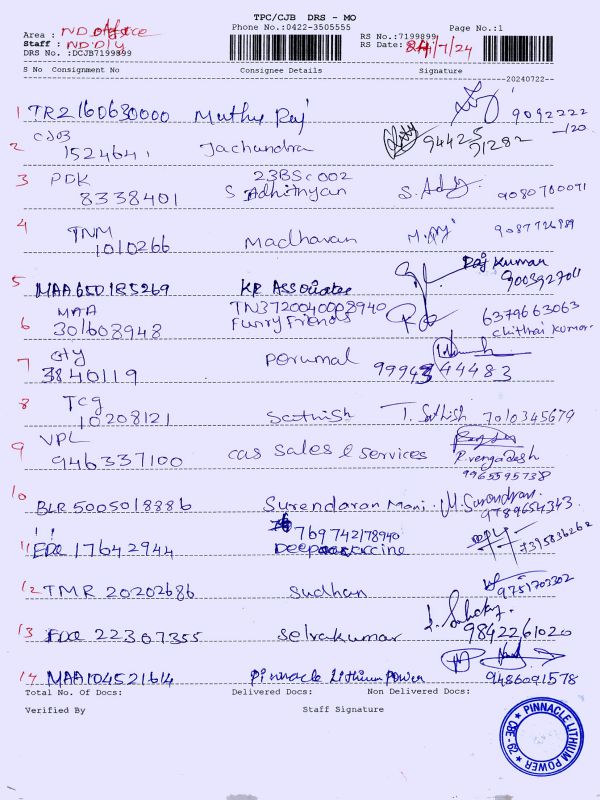 TPC/CJB DRS - MO
Phone No.:0422-3505555
Page No.:1
Area : ND office
Staff : ND D/y
DRS No. :DCJB7199899
RS No.:7199899
RS Date: /7/24
S No Consignment No Consignee Details Signature
20240722--
1 TR2160630000 Muthu Raj 9092222
-120
2 CJB 1524641 Jachandra 94425 91282
3 PDK 8338401 23BSC002 S Adhithyan S. Ady 9080780071
4 TNM 1010266 Madhavan 9087726989
5 MAA650185269 KR Associates Raj Kumar
6 MAA 301608948 TN3720040008940 Funny Friends 6379663063 Chithai Kumar
7 Oty 3840119 Perumal 99943 44483
8 Tcg 10208121 Sathish T. Sathish 7010345679
9 VPL 946337100 cas sales & services P. vengadesh 9965595738
10 BLR 5005018886 Surendaran Mani M. Surendran 9789654343
11 EDC 17642944 769742178940 7395836262
12 TMR 20202686 Sudhan 9751702302
13 EDC 22307355 Selvakumar 9842261020
14 MAA104521614 Pinnacle Lithium Power 9486091578
Total No. Of Docs: Delivered Docs: Non Delivered Docs:
Verified By Staff Signature
PINNACLE LITHIUM POWER
CBE-29